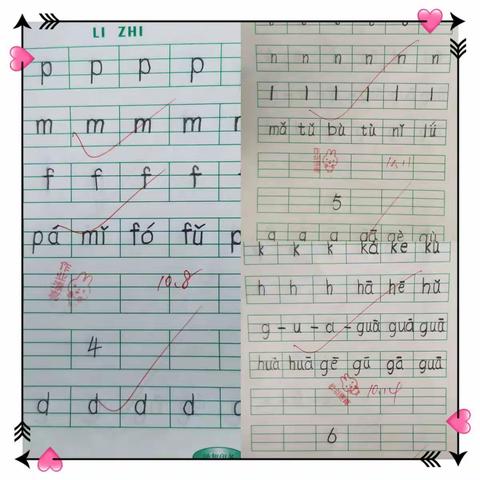 LI ZHI
p p p p
m m m m
f f f f
pá mǐ fó fǔ p
10.8
4
d d d d d
n n n n n n
l l l l l l
mǎ tǔ bù tù nǐ lǘ
10.11
5
a a a gā gè gù
k k k kǎ kè kù
h h h hā hē hǔ
g - u - a - guā guá guā
huà huā gē gū gā guā
10.14
6